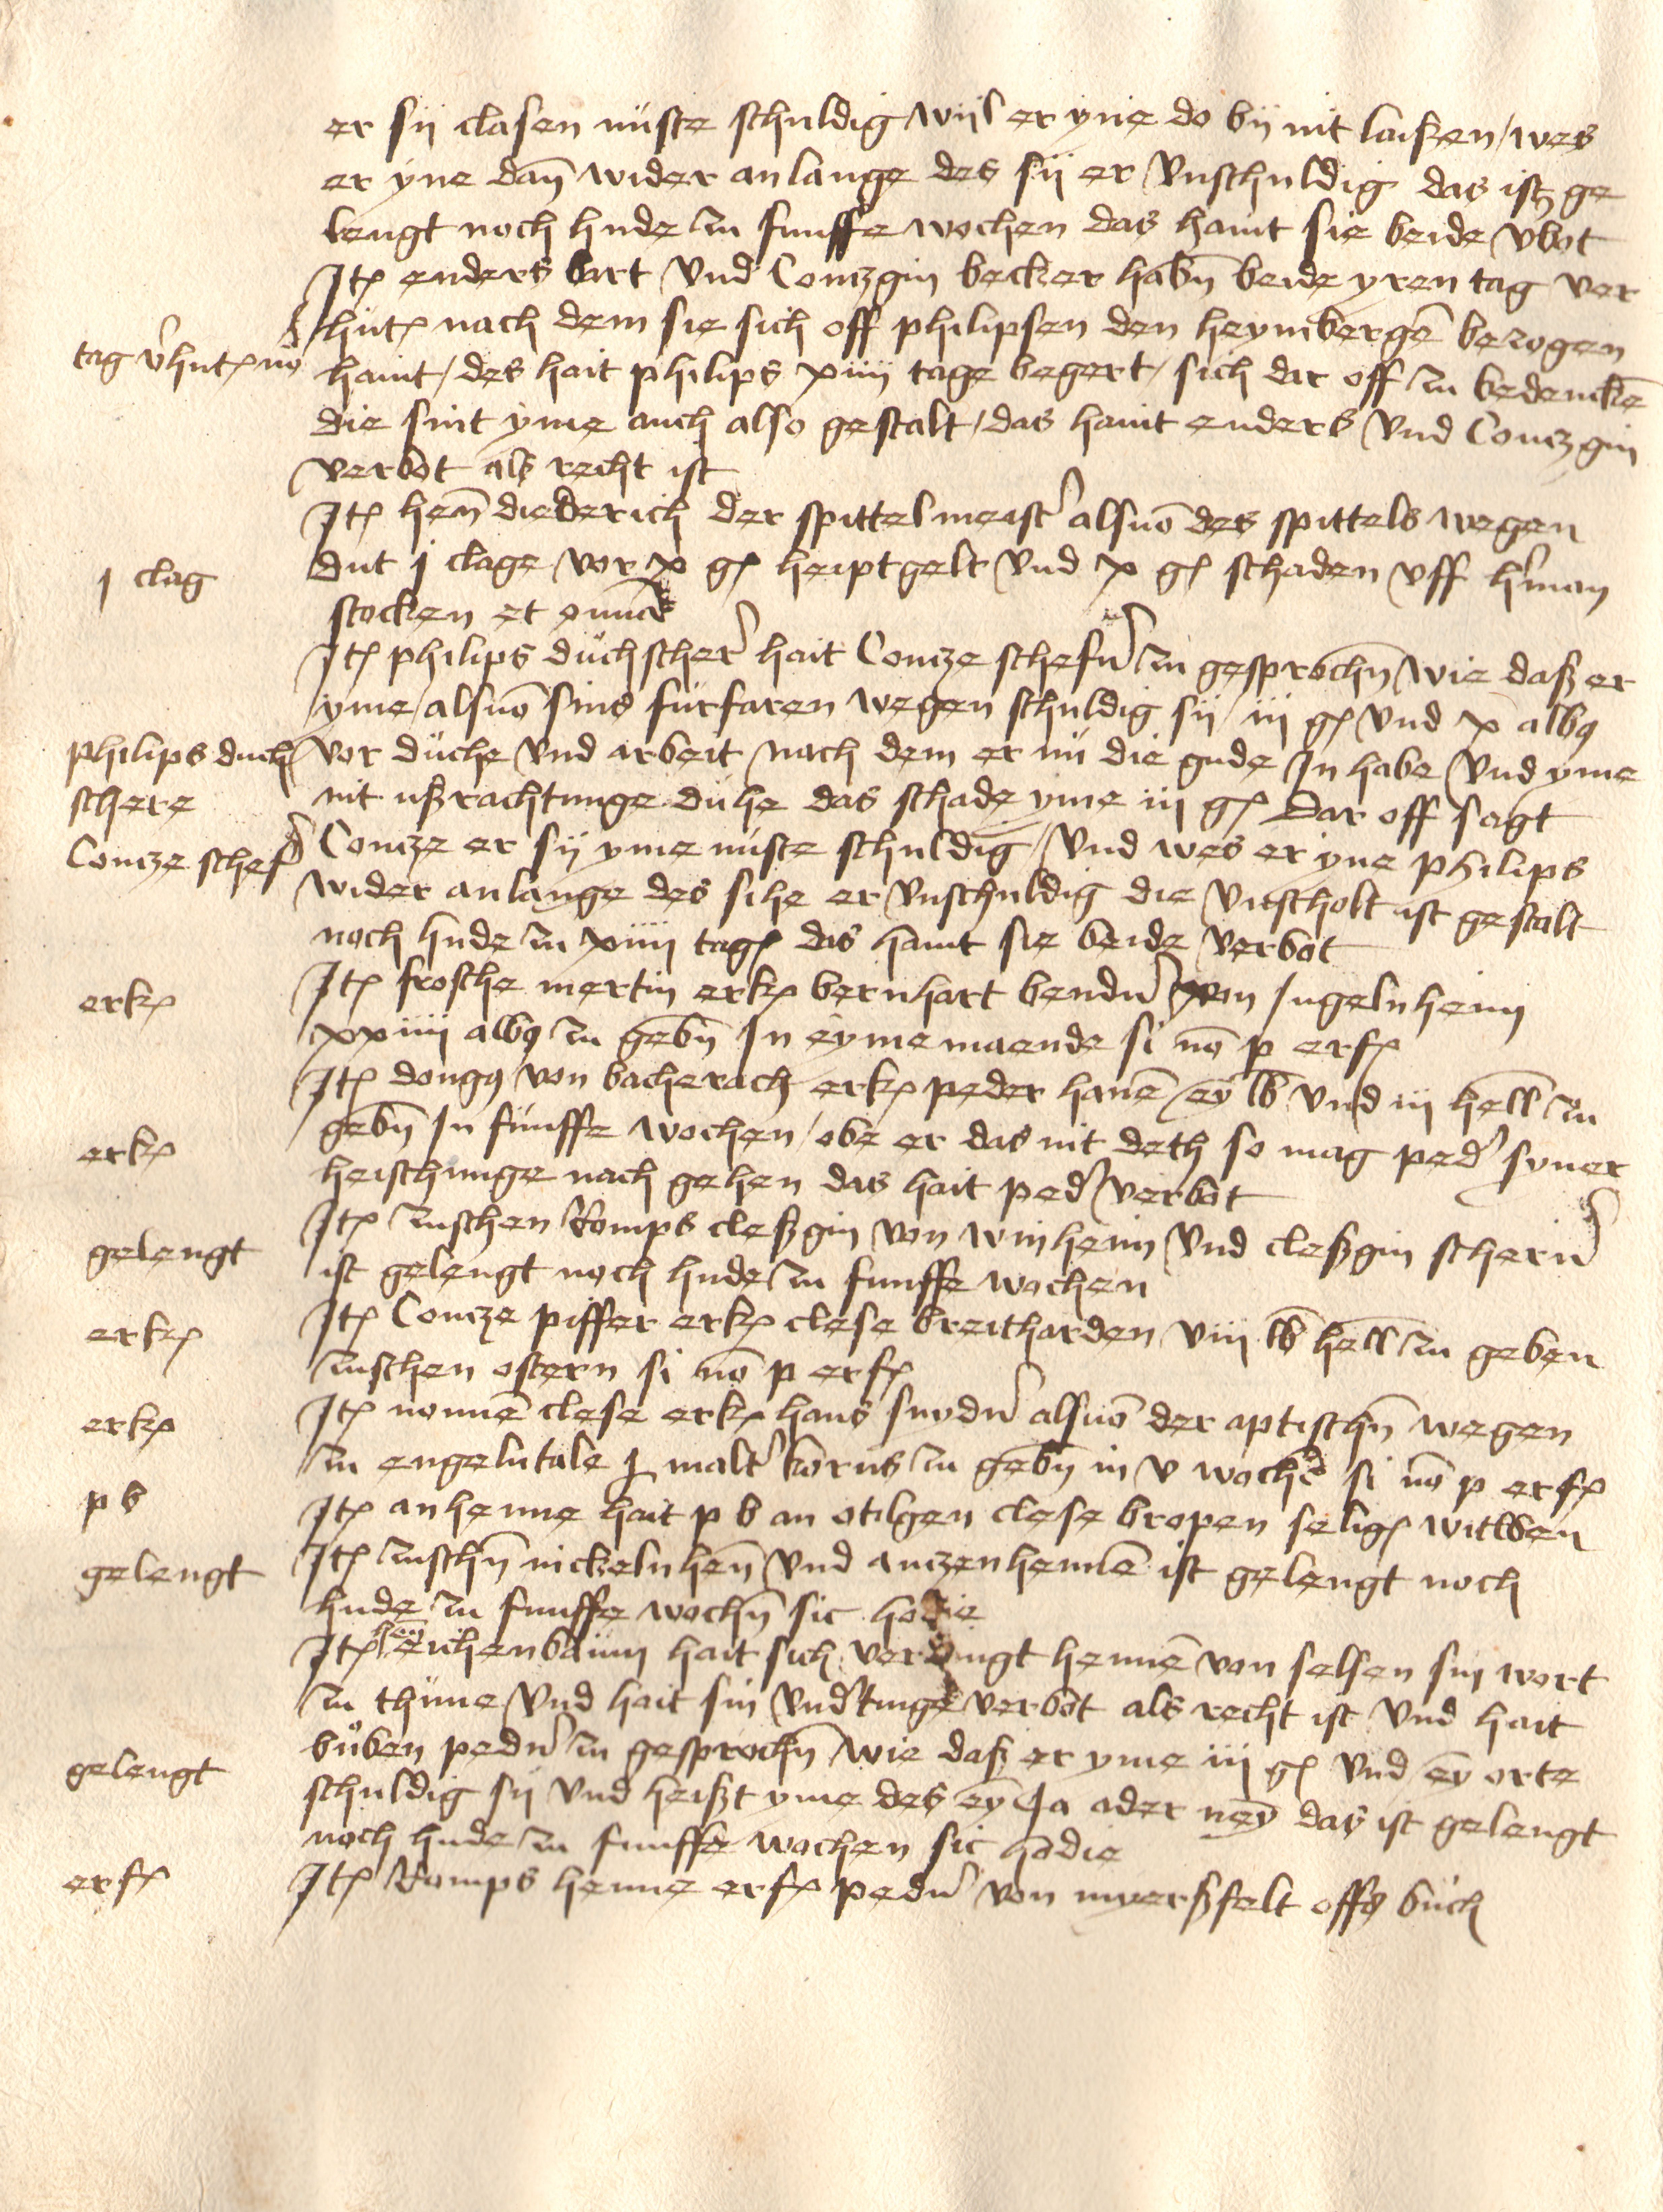 er sij clasen nüste schuldig wijl er yne do bij nit laißen / wes
er yne dan̄ wider anlange des sij er vnschuldig das ist ge
lengt noch hude zu funffe wochen das haint sie beide v'bot
Jtē enders bart vnd Contzgin becker habn̄ beide yren tag ver
tag v'hutē no
hutē nach dem sie sich off philipsen den heymbergē bezogen
haint / des hait philips xiiii tage begert / sich dar off zu bedenckē
die sint yme auch also gestalt / das haint enders vnd Contzgin
verbot als recht ist
Jtē hen̄ diederich der spittelmeist' alsuō des spittels wegen
j clag
dut j clage vor x gē heiptgelt vnd x gē schaden vff h'man
stocken et om̄a
Jtē philips düchscher' hait Contze schefu' zu gesprochn̄ wie daß er
yme / alsuō sins furfaren wegen schuldig sij / iii gē vnd x albȝ
philips duch
schere
vor düche vnd arbeit / nach dem er nü die gude Jn habe vnd yme
nit ußrachtunge dühe das schade yme iii gē Dar off sagt
Contze schef'
Contze er sij yme nüste schuldig / vnd wes er yne philips
wider anlange des sihe er vnschuldig die vnscholt ist gestalt
noch hude zu xiiii tagē das haint sie beide verbot
erkē
Jtē frosche mertin erkē bernhart bendu' von Jngelnheim
xxiiii albȝ zu gebn̄ Jn eyme maende si nō p erfē
Jtē dongȝ von bacherach erkē peder hanē / ey lb vnd iii hell zu
erkē
gebn̄ Jn fünffe wochen / obe er das nit deth so mag ped' syner
heischunge nach gehen das hait ped' verbot
gelengt
Jtē zuschen Romps cleßgin von winheim vnd cleßgin scheru'
ist gelengt noch hude zu funffe wochen
erkē
Jtē Contze piffer erkē clese breitharden viii lb hell zu geben
zuschen ostern si nō p erfē
erkē
Jtē nonnē clese erkē hans snydu' alsuō der aptischn̄ wegen
zu engelntale j malt' korns zu gebn̄ in v wochē si nō p erfē
p b
Jtē anhenne hait p b an otilgen clese bropen seligē witwen
gelengt
Jtē zuschn̄ nickeln hen̄ vnd antzenhennē ist gelengt noch
hude zu funffe wochn̄ sic hodie
Jtē hen̄ eichenbaum hait sich verdingt hennē von selsen sin wort
zu thüne vnd hait sin vnd'tinge verbot als recht ist vnd hait
büben pedu' zu gesprochn̄ wie daß er yme iii gē vnd ey orte
gelengt
schuldig sij vnd heißt yme des ey Ja ader ney das ist gelengt
noch hude zu funffe wochen sic hodie
erfē
Jtē Romps henne erfē pedu' von myerßfelt offs büch